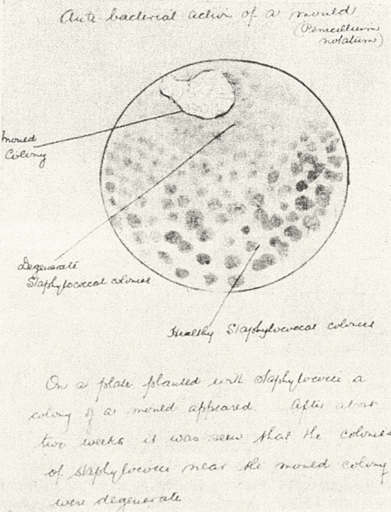 Anti-bacterial action of a mould
(Penicillium
notatum)
Mould
Colony
Degenerate
Staphylococcal colonies
Healthy Staphylococcal colonies
On a plate planted with staphylococci a
colony of a mould appeared. After about
two weeks it was seen that the colonies
of staphylococci near the mould colony
were degenerate